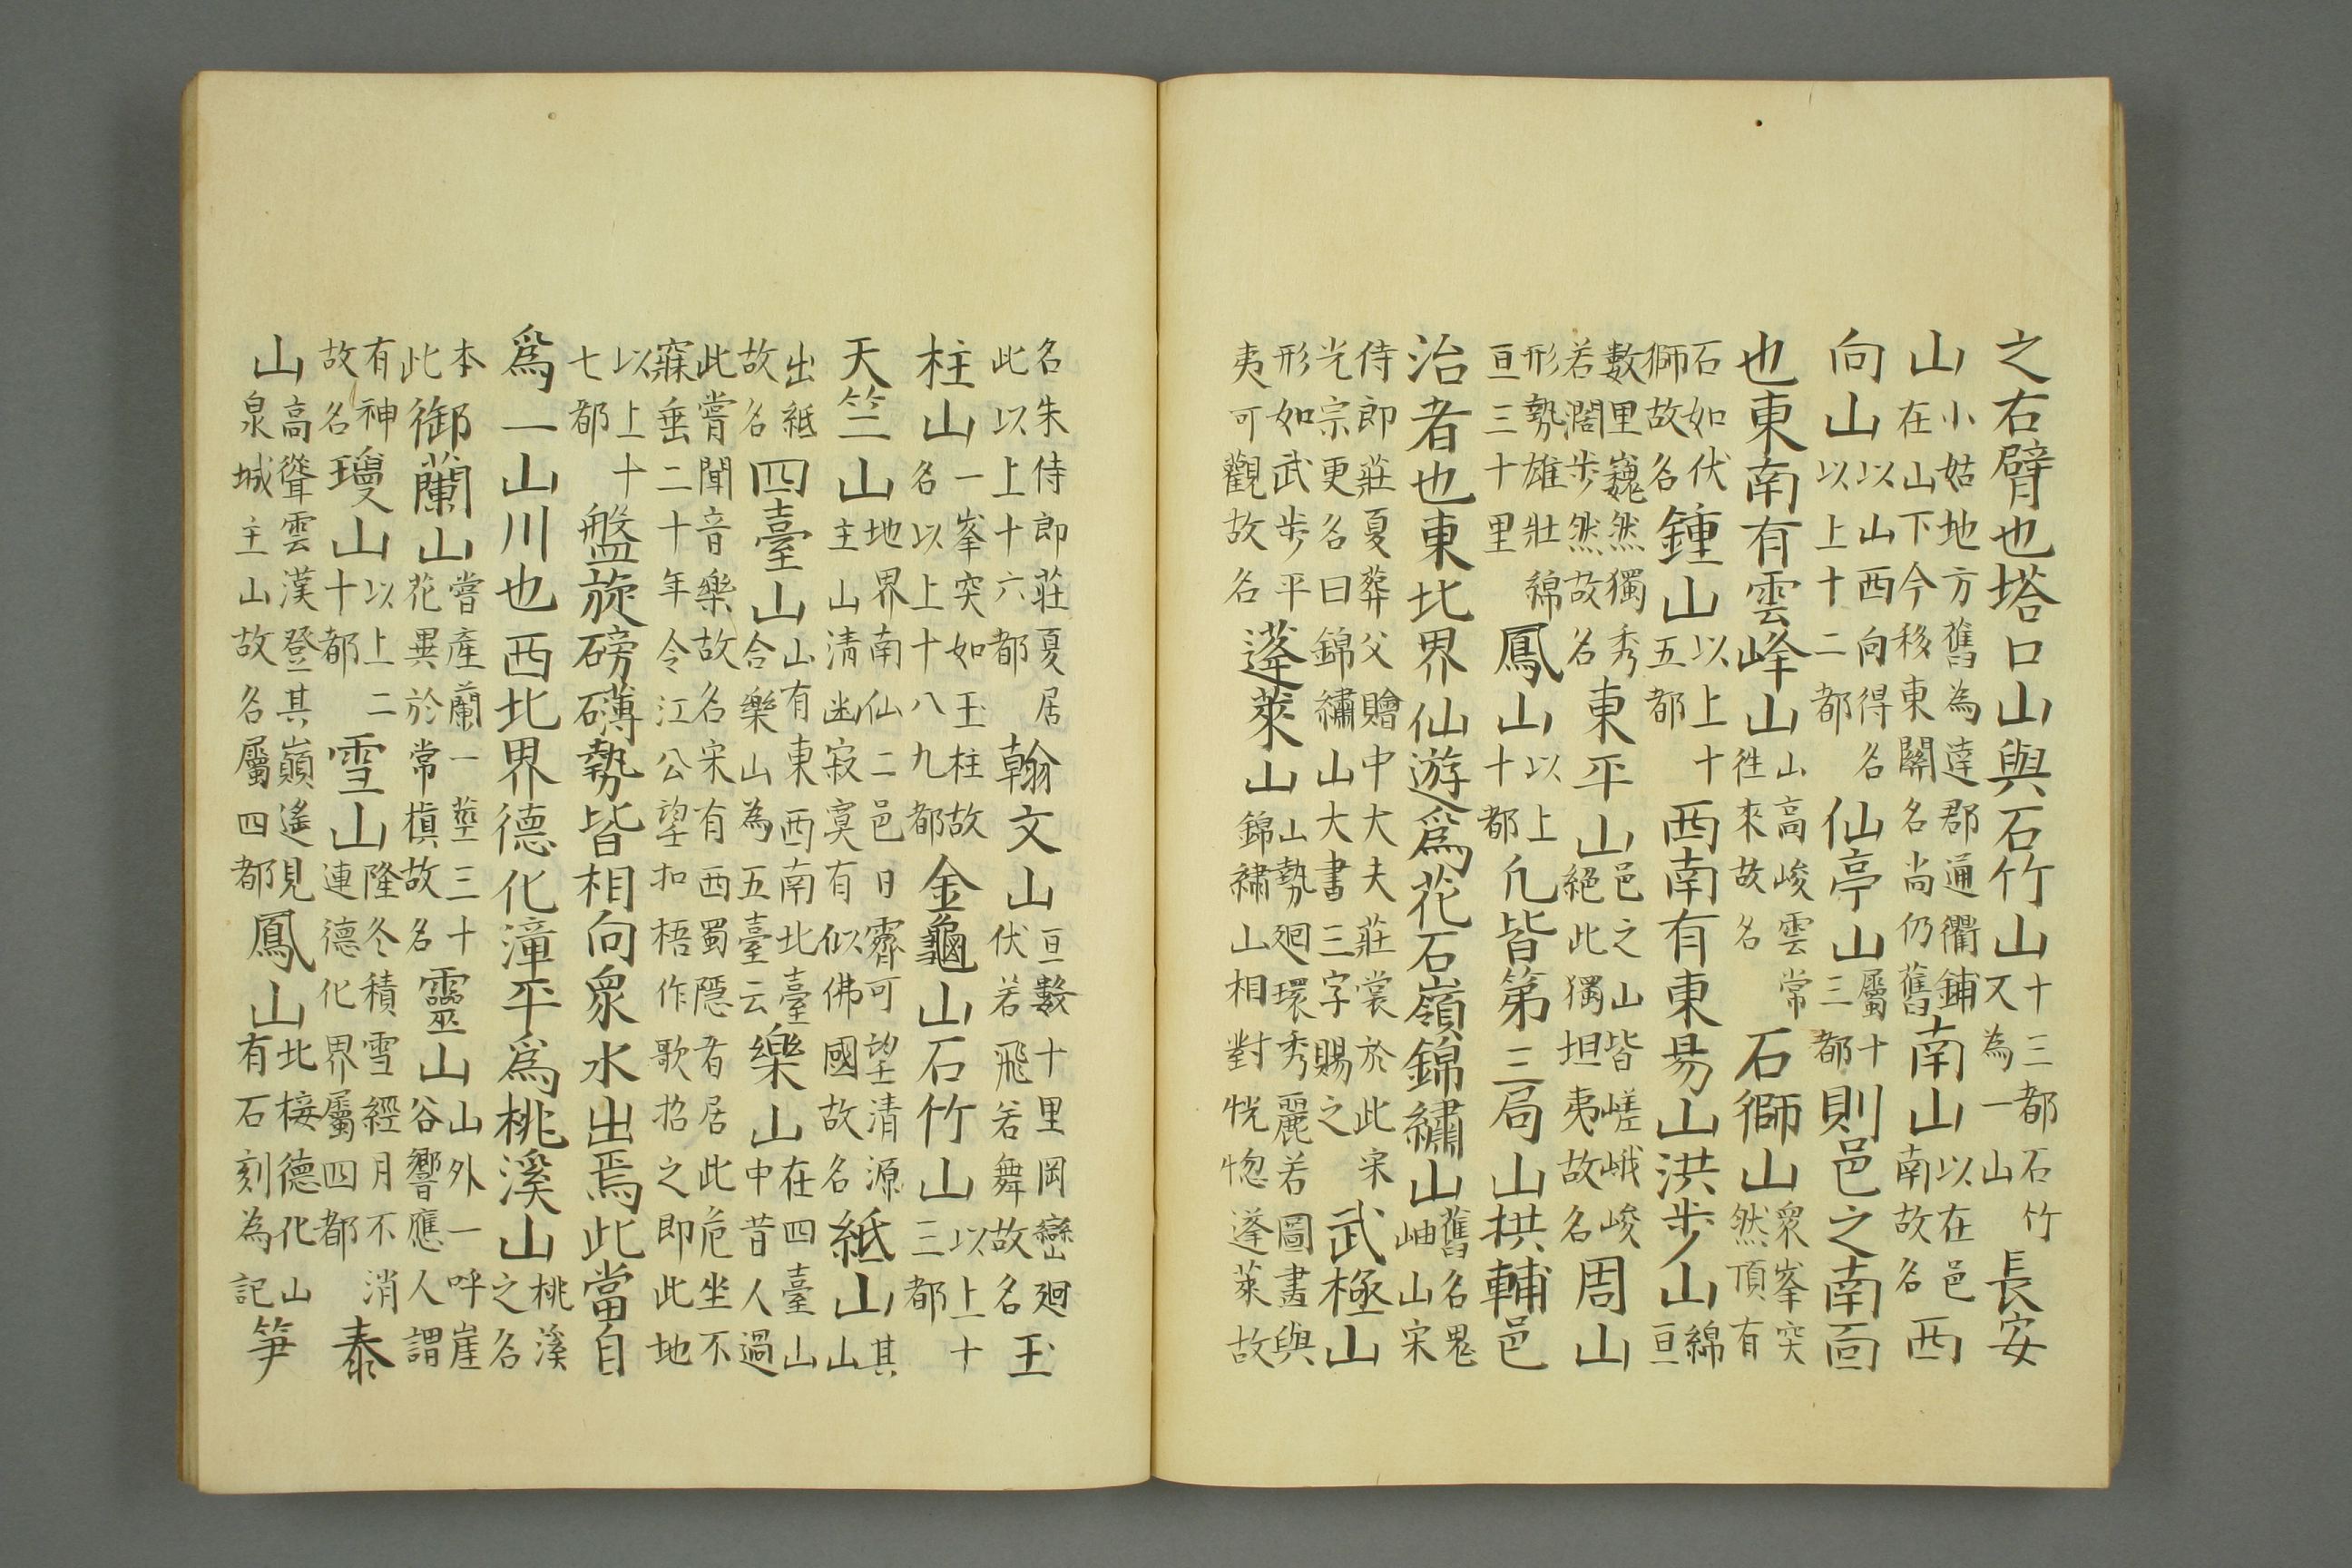 之右臂也塔口山與石竹山十三都石竹又為一山長安
山小姑地方舊為達郡通衢鋪在山下今移東關名尚仍舊南山以在邑南故名西
向山以山西向得名以上十二都仙亭山屬十三都則邑之南靣
也東南有雲峰山山高峻雲常徃來故名石獅山衆峯突然頂有
石如伏獅故名鍾山以上十五都西南有東昜山洪步山綿亘
數里巍然獨秀若濶步然故名東平山邑之山皆嵯峨峻絕此獨坦夷故名周山
形勢雄壯綿亘三十里鳳山以上十都凢皆第三局山拱輔邑
治者也東北界仙遊爲花石嶺錦繡山舊名鬼岫山宋
侍郎莊夏葬父贈中大夫莊裳於此宋光宗更名曰錦繡山大書三字賜之武極山
形如武步平夷可觀故名蓬萊山山勢廻環秀麗若圖畫與錦繡山相對恍惚蓬萊故
名朱侍郎莊夏居此以上十六都翰文山亘數十里岡巒廻伏若飛若舞故名玉
柱山一峯突如玉柱故名以上十八九都金龜山石竹山以上十三都
天竺山地界南仙二邑日霽可望清源主山清幽寂寞有似佛國故名紙山其山
出紙故名四臺山山有東西南北臺合樂山為五臺云樂山在四臺山中昔人過
此嘗聞音樂故名宋有西蜀隱者居此危坐不寐垂二十年令江公望扣梧作歌招之即此地
以上十七都盤旋磅礴勢皆相向衆水出焉此當自
爲一山川也西北界德化漳平爲桃溪山桃溪之名
本此御蘭山嘗產蘭一莖三十花異於常槓故名靈山山外一呼崖谷響應人謂
有神故名瓊山以上二十都雪山隆冬積雪經月不消連德化界屬四都泰
山高聳雲漢登其巔遙見泉城主山故名屬四都鳳山北接德化山有石刻為記笋